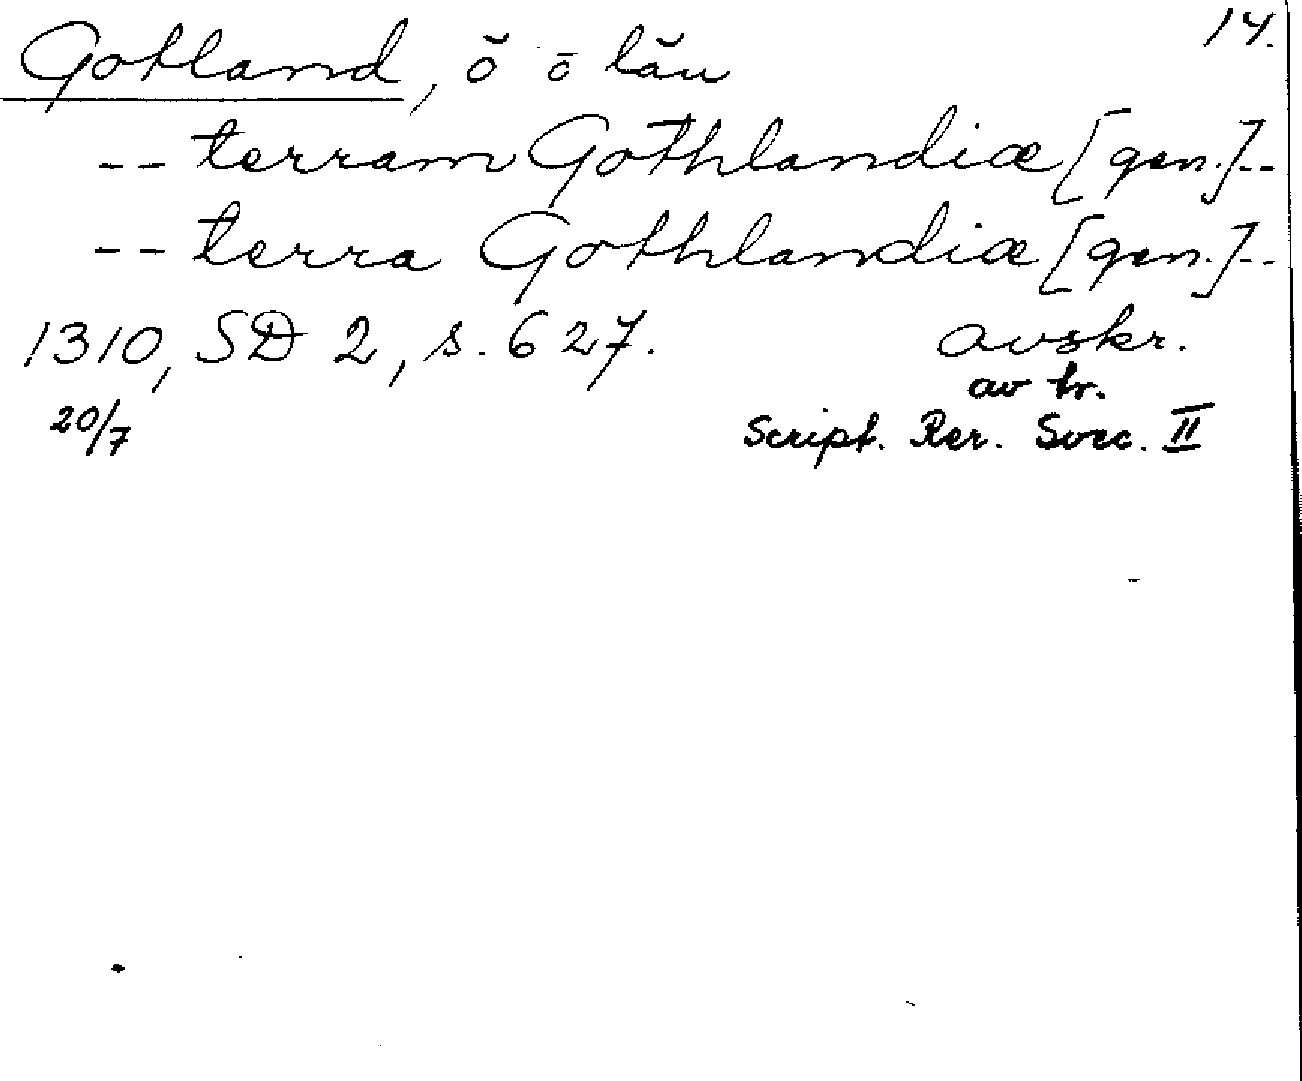 14.
Gotland, ö o län
-- terram Gothlandiæ [gen.]--
-- terra Gothlandiæ [gen.]--
1310, SD 2, s. 627. avskr.
av tr.
20/7 Script. Rer. Svec. II